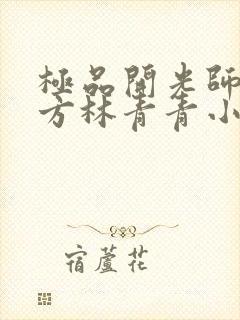 極品開光師
方林青青小
宿蘆花